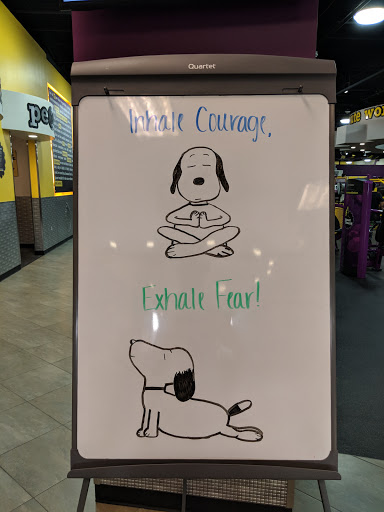 Quartet
Inhale Courage,
Exhale Fear!